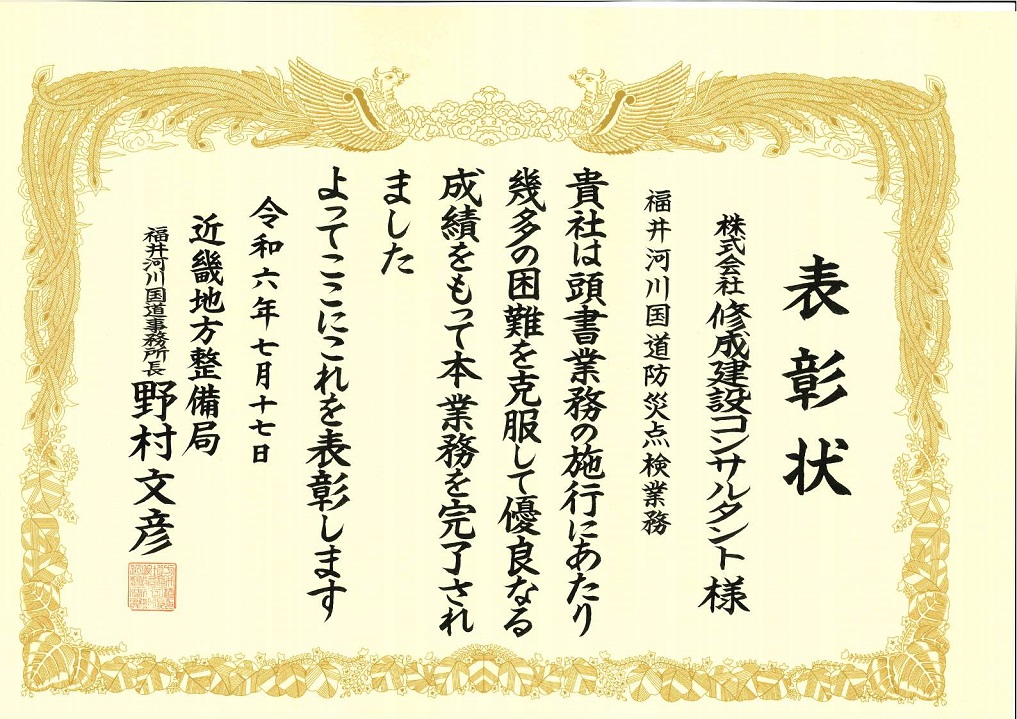 表彰状
株式会社 修成建設コンサルタント 様
福井河川国道防災点検業務
貴社は頭書業務の施行にあたり
幾多の困難を克服して優良なる
成績をもって本業務を完了され
ました
よってここにこれを表彰します
令和六年七月十七日
近畿地方整備局
福井河川国道事務所長 野村文彦